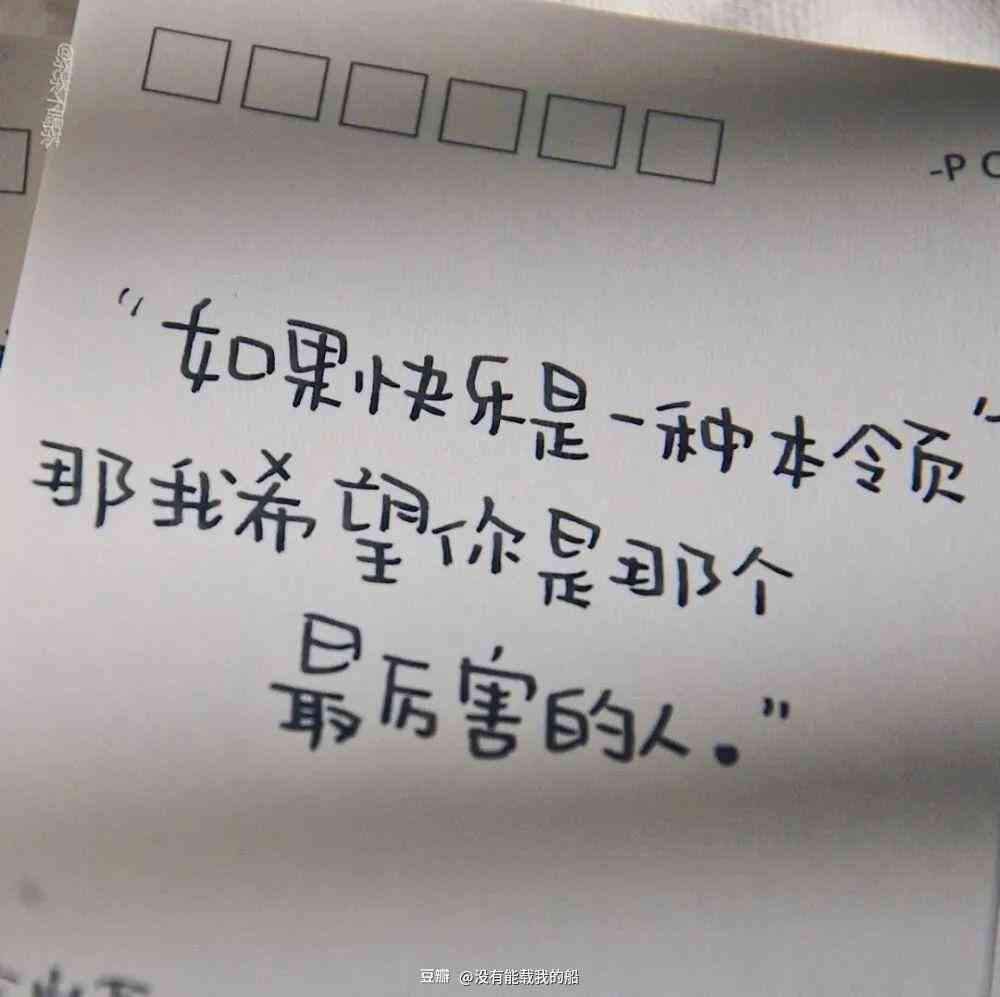 -P
“如果快乐是一种本领”
那我希望你是那个
最厉害的人。”
豆瓣 @没有能载我的船